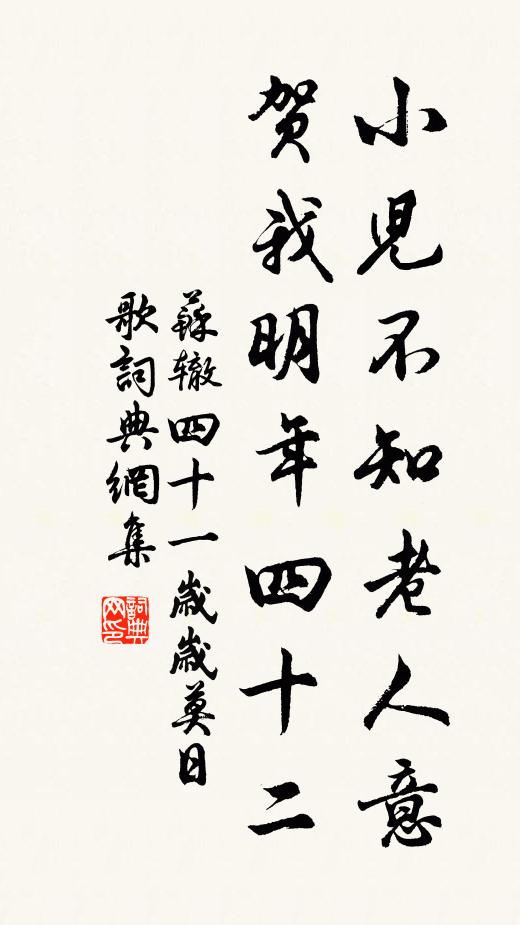 小兒不知老人意
賀我明年四十二
蘇辙四十一歲歲莫日
歌詞典網集
詞典
网印